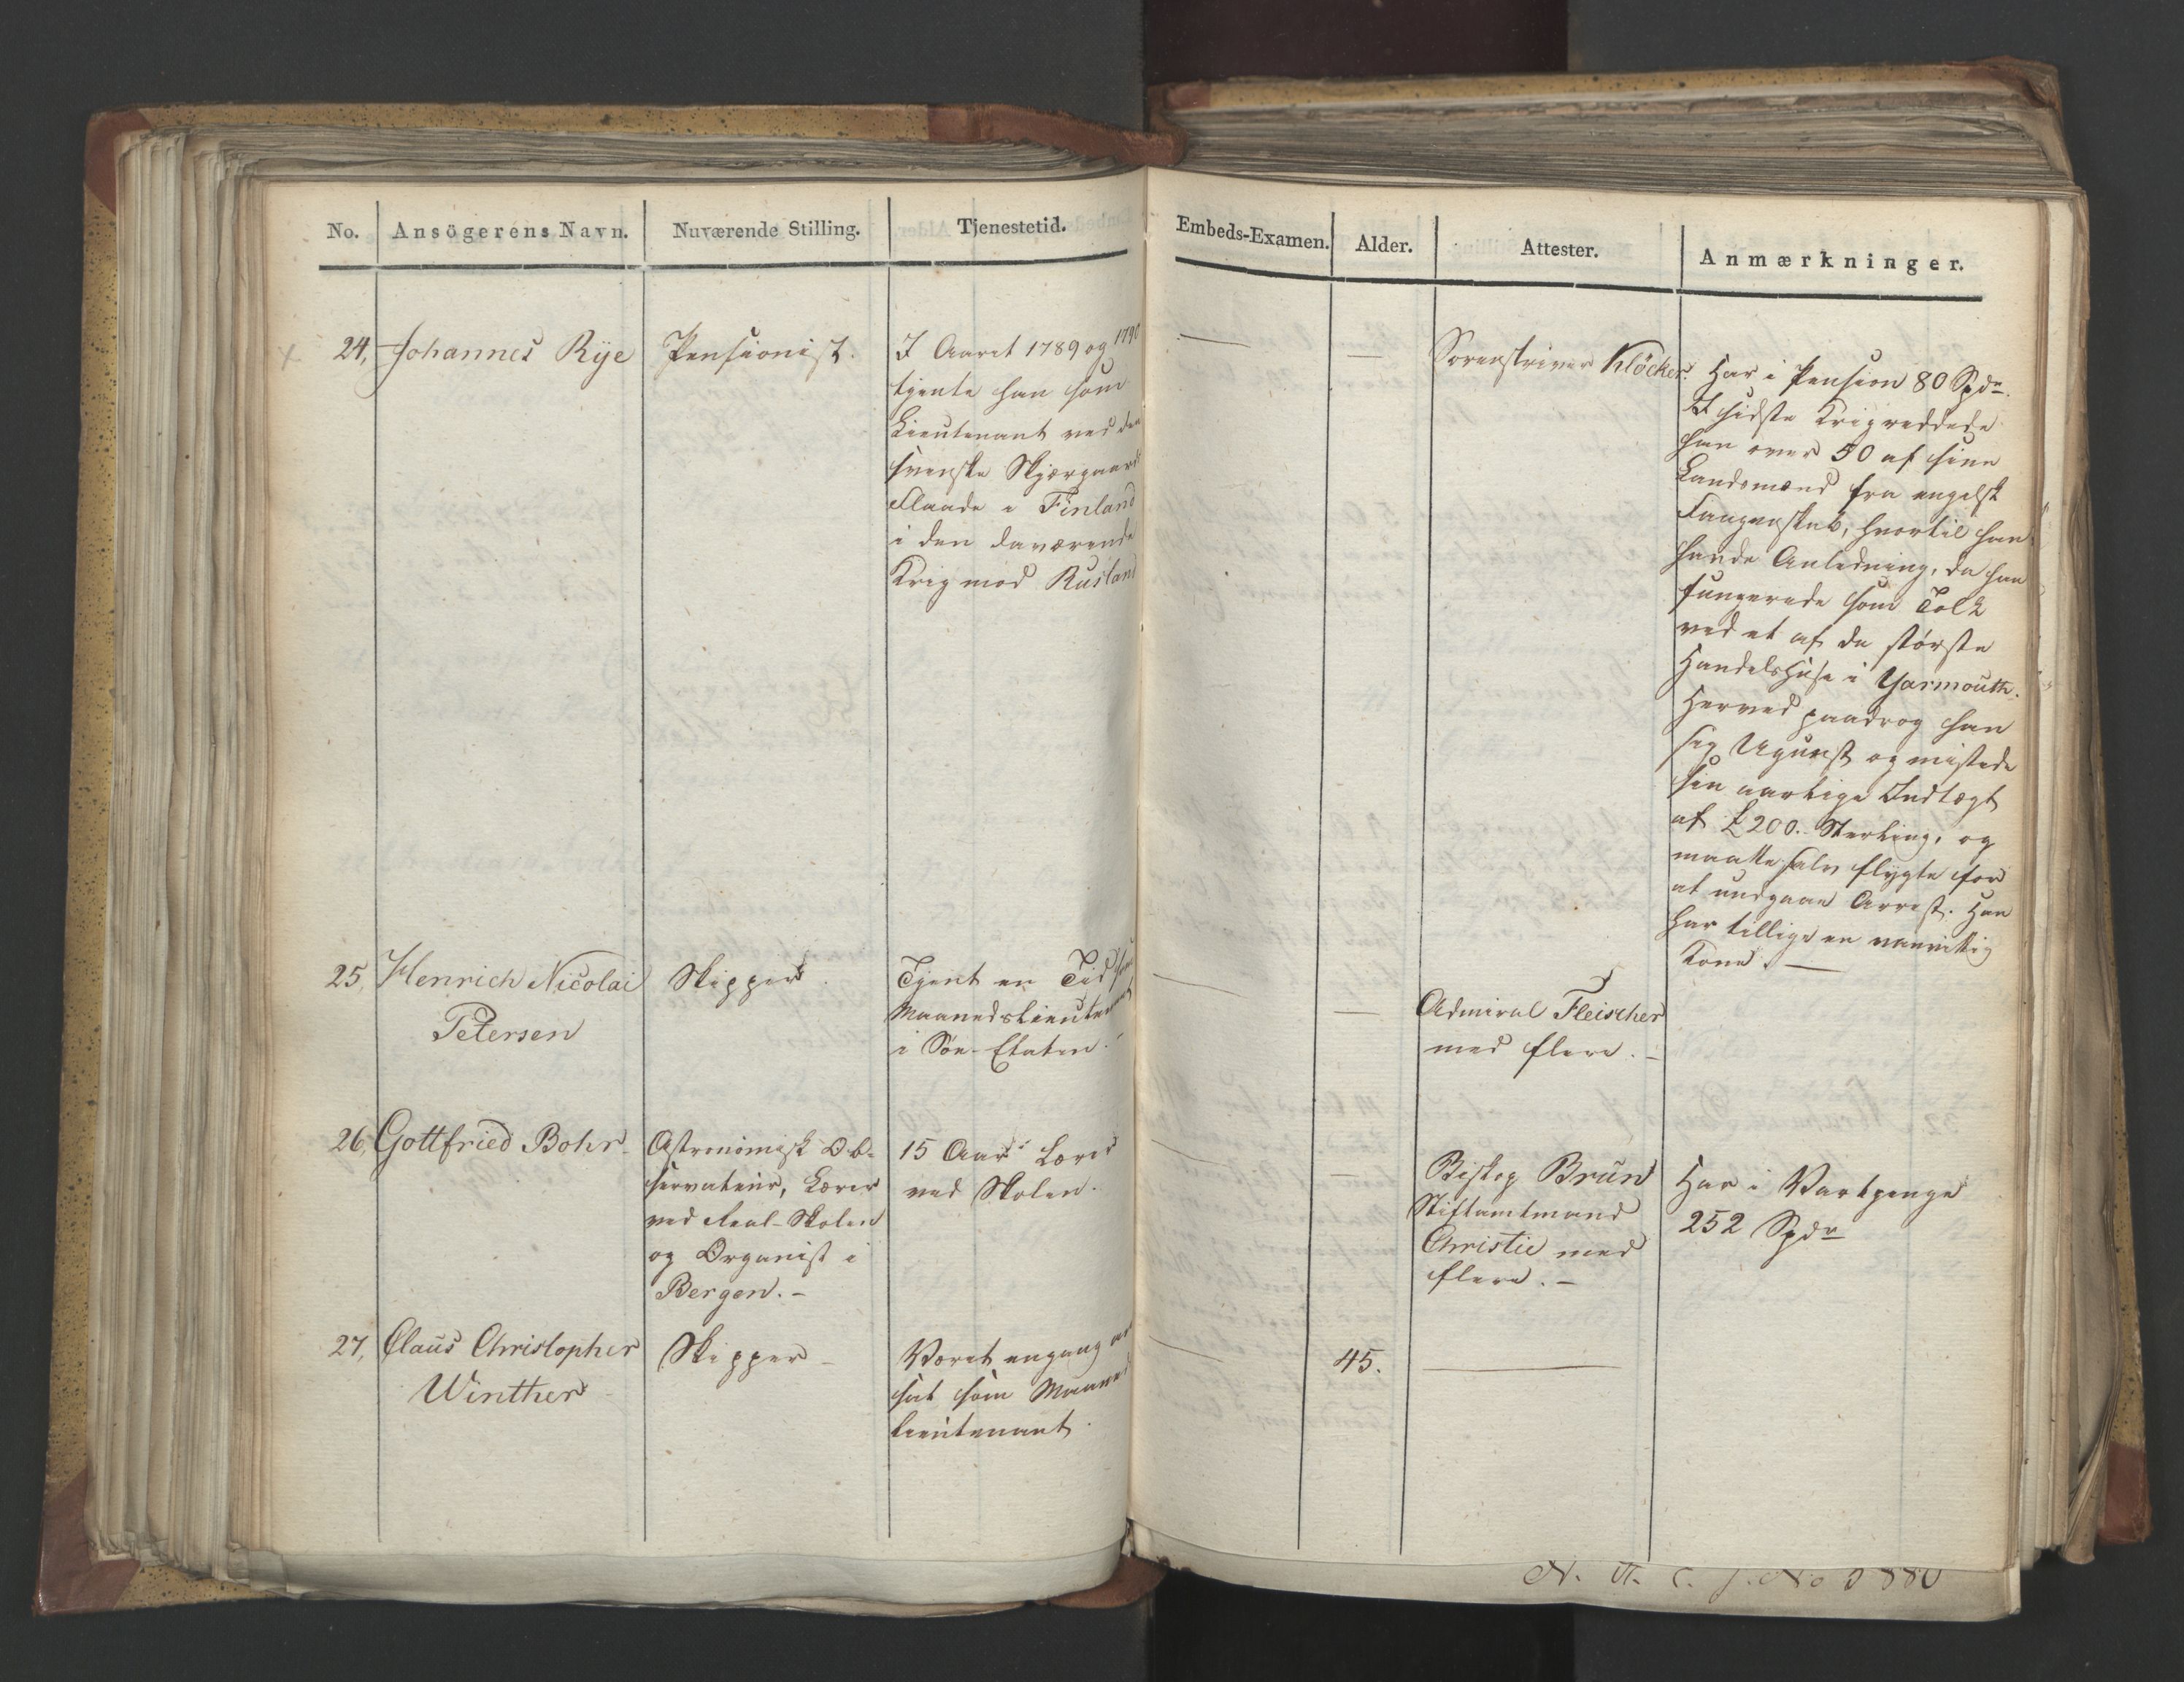 No. Ansögerens Navn. Nuværende Stilling. Tjenestetid.
24, Johannes Rÿe Pensionist. I Aaret 1789 og 1790
tjente han som
Lieutenant ved den
svenske Skjærgaards
Flaade i Finland
i den daværende
Krig mod Rusland
25, Henrich Nicolai Skipper. Tjent en Tid som
Petersen Maanedslieutenant
i Söe-Etaten.
26, Gottfried Bohr Astronomisk Ob-
servateur, Lærer
ved Real-Skolen
og Organist i
Bergen. -
15 Aar Lærer
ved Skolen.
27, Claus Christopher Skipper - Været engang an
Winther sat som Maaneds
lieutenant.
Embeds-Examen. Alder. Attester. Anmærkninger.
— — Sorenskriver Klöcker. Har i Pension 80 Spdr.
I sidste Krig reddede
han over 50 af sine
Landsmænd fra engelsk
Fangenskab, hvortil han
havde Anledning, da han
fungerede som Tolk
ved et af de største
Handelshuse i Yarmouth.
Herved paadrog han
sig Ugunst og mistede
sin aarlige Indtægt
af £200. Sterling, og
maatte selv flygte for
at undgaae Arrest. Han
har tillige en vanvittig
Kone. —
— — Admiral Fleischer
med flere. -
— — Biskop Brun
Stiftamtmand
Christie med
flere. -
Har i Vartpenge
252 Spdr
— 45. —